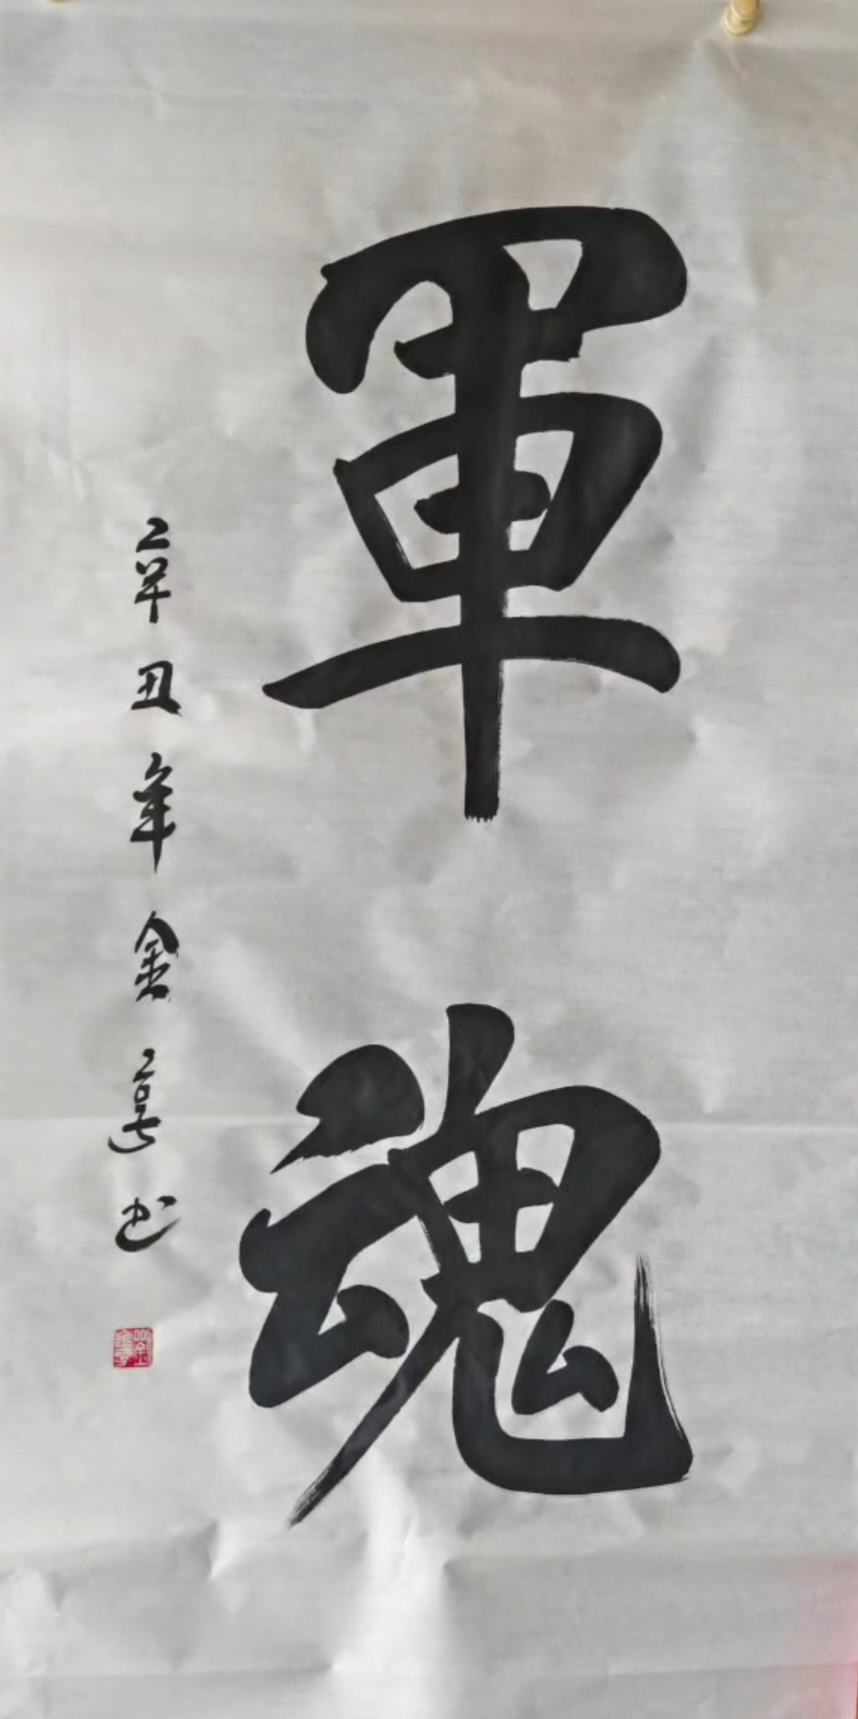 軍魂
辛丑年金亮书